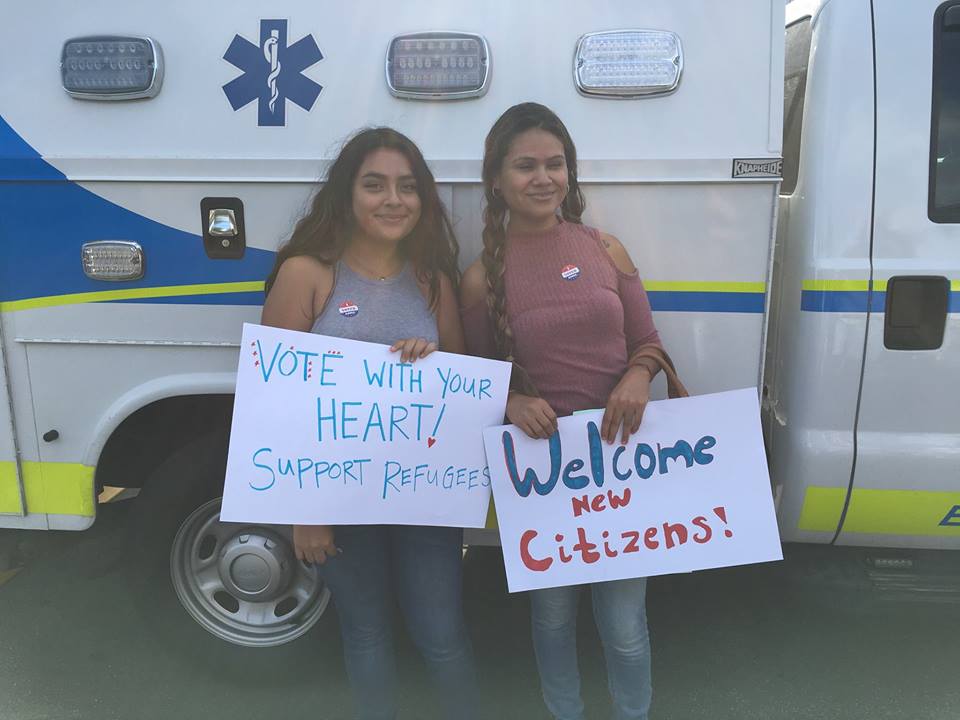 KNAPHEIDE
VOTE WITH YOUR
HEART!
SUPPORT REFUGEES
Welcome
NEW
Citizens!